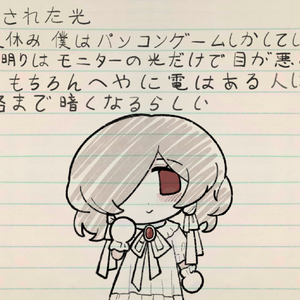 された光
休み 僕はパソコンゲームしかしてし
明りはモニターの光だけで目が悪
もちろんへやに電はある人に
まで暗くなるらしい